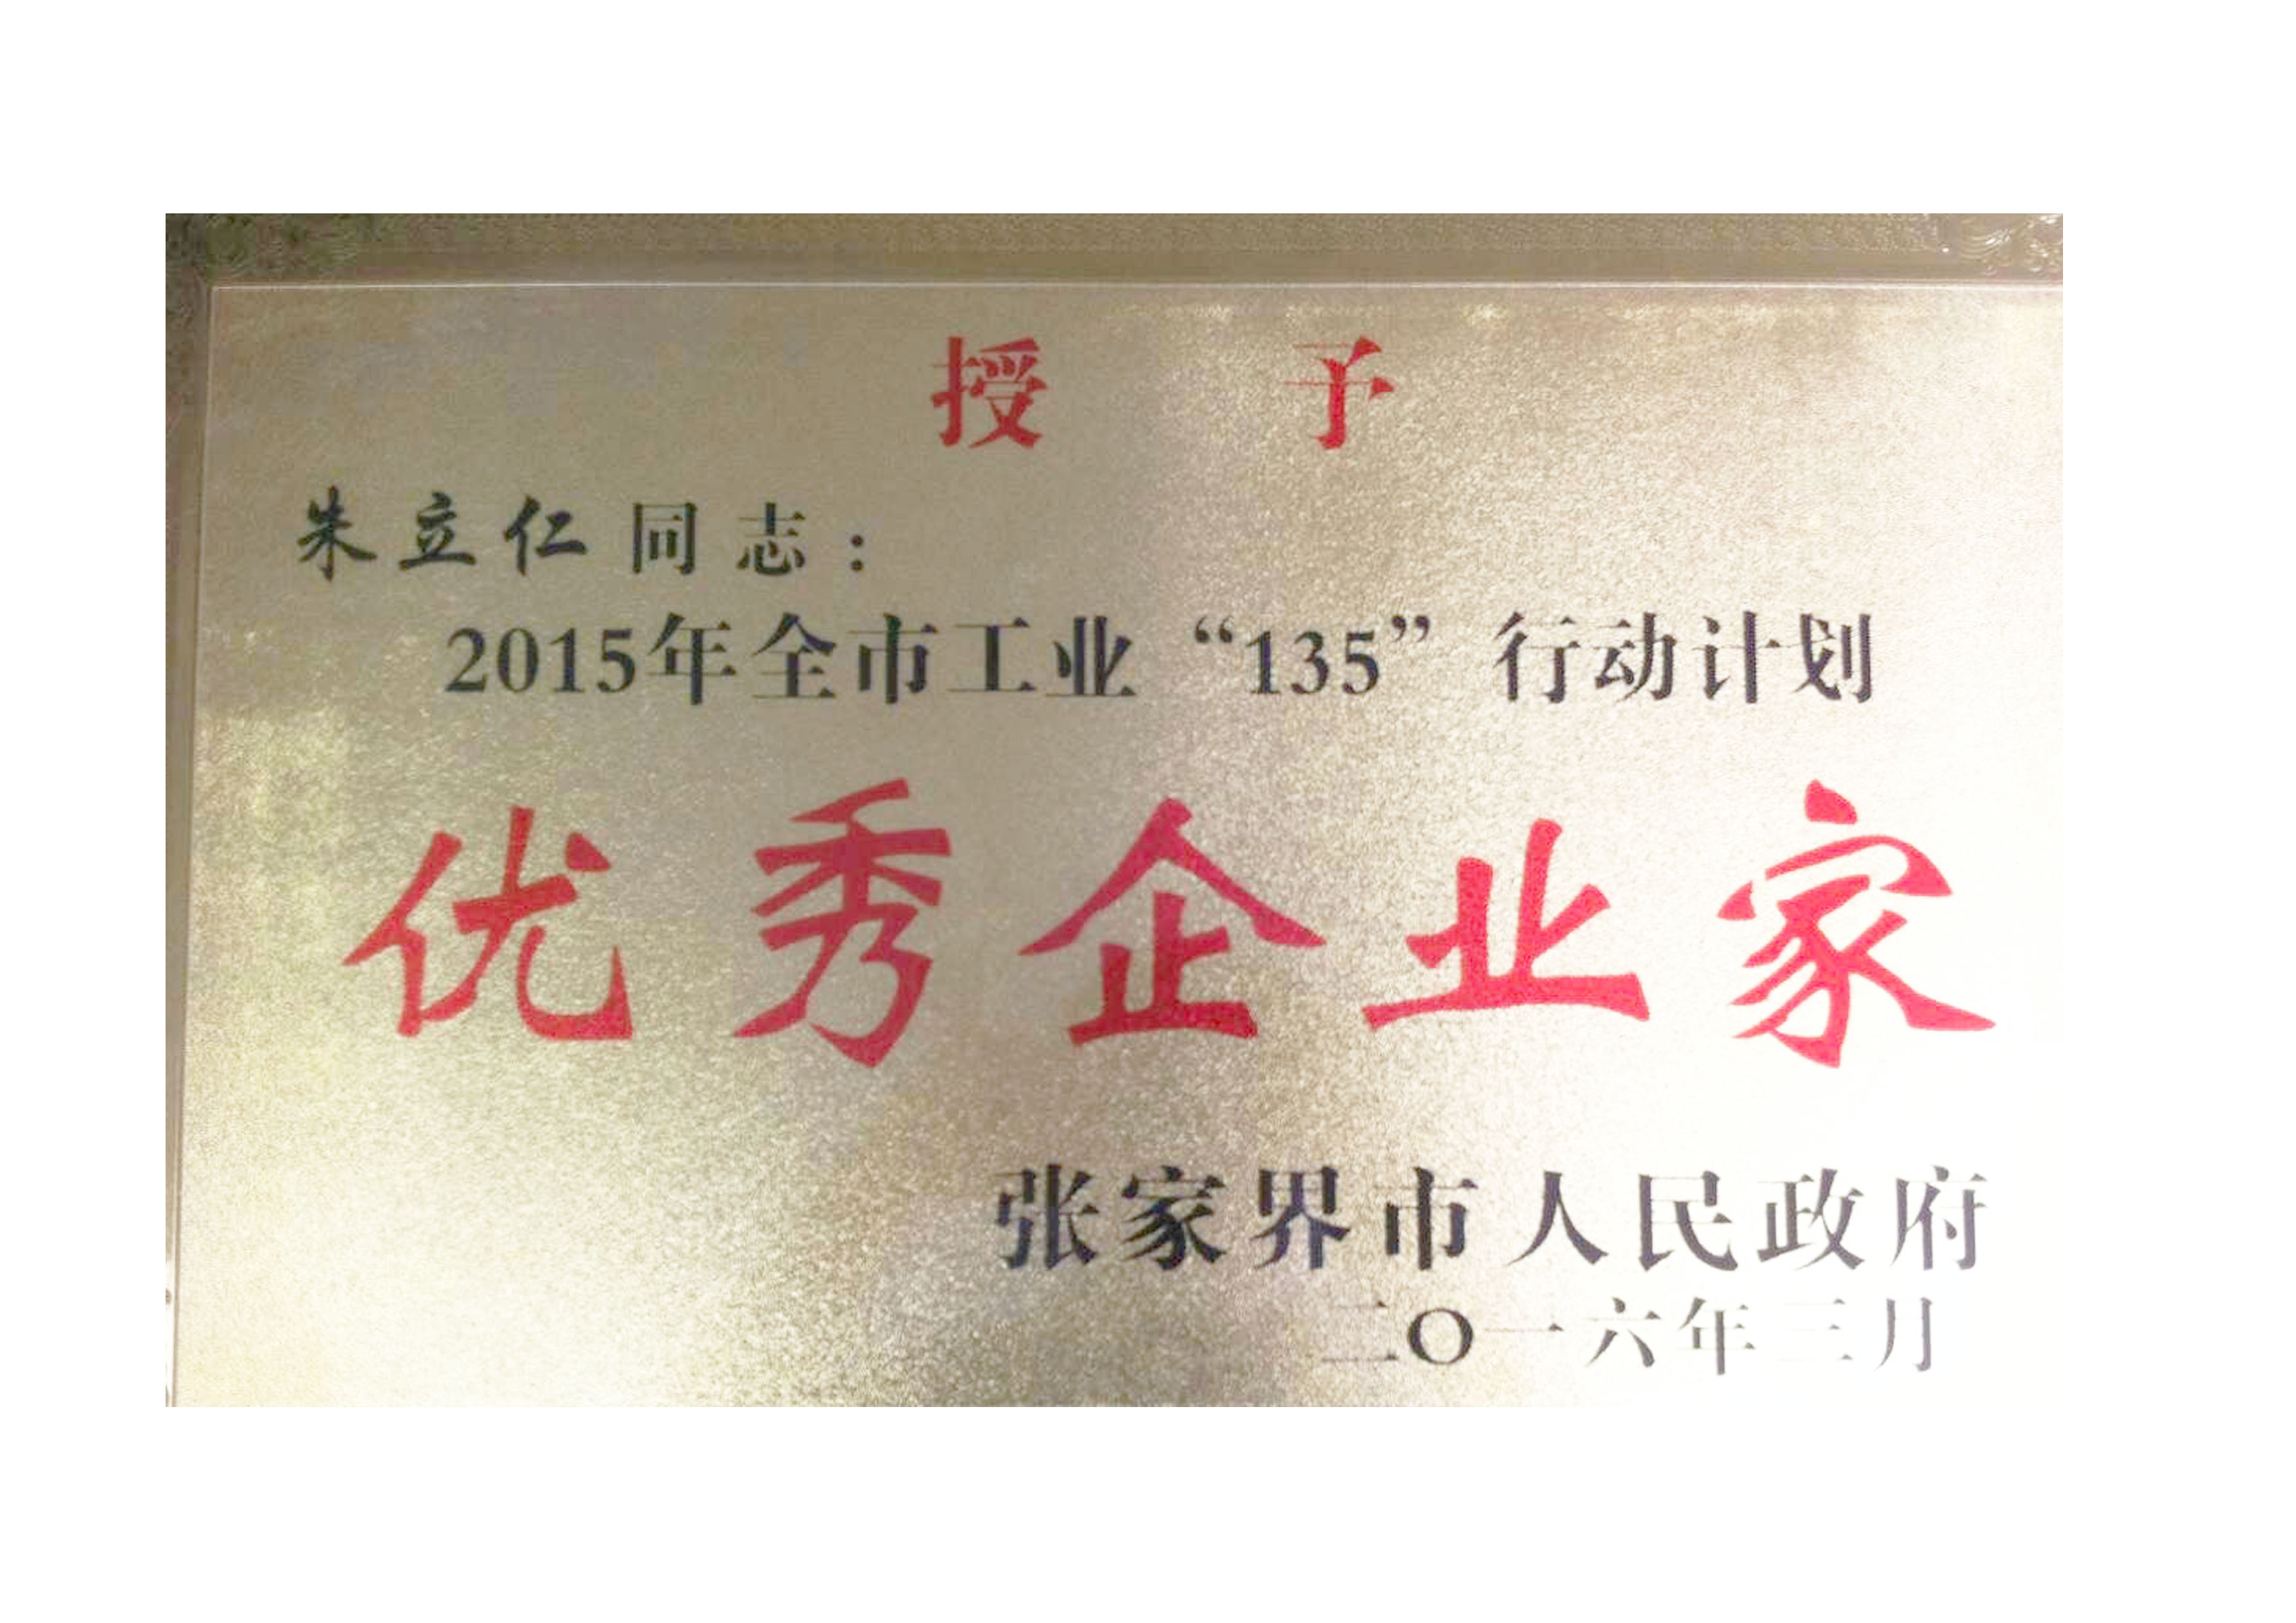 授 予
朱立仁同志：
2015年全市工业“135”行动计划
优秀企业家
张家界市人民政府
二〇一六年三月